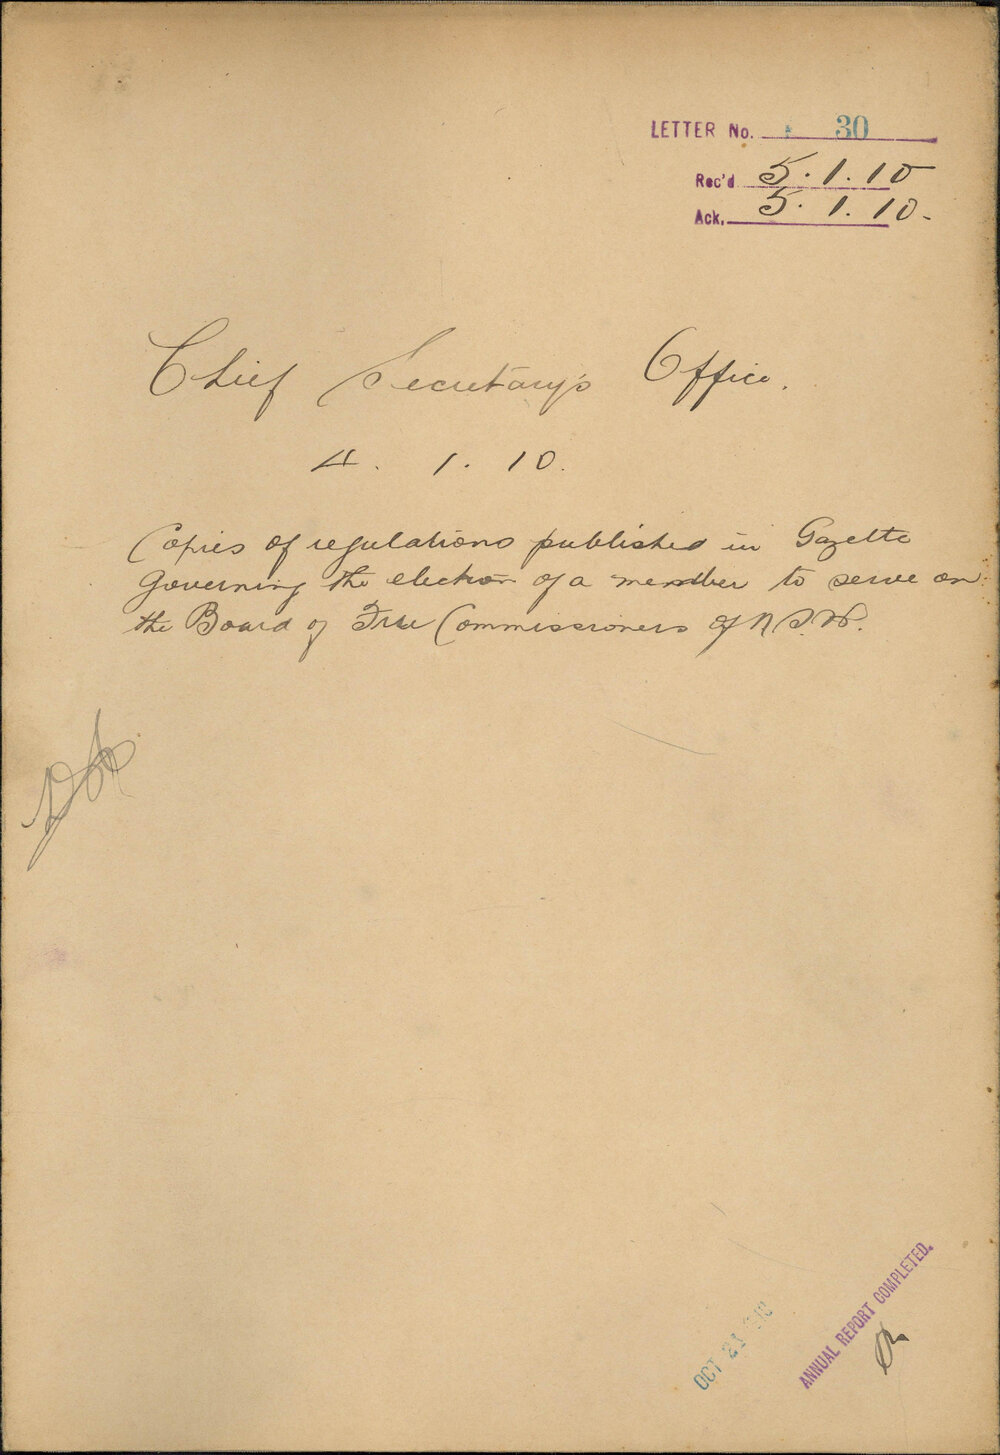 LETTER No. 30
Rec'd 5.1.10
Ack. 5.1.10.
Chief Secretary's Office.
4. 1. 10.
Copies of regulations published in Gazette
governing the election of a member to serve on
the Board of Fire Commissioners of N.S.W.
OCT 21 1910
ANNUAL REPORT COMPLETED.